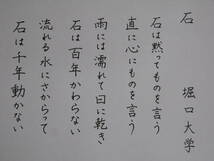 石
堀口大学
石は黙ってものを言う
直に心にものを言う
雨には濡れて日に乾き
石は百年かわらない
流れる水にさからって
石は千年動かない